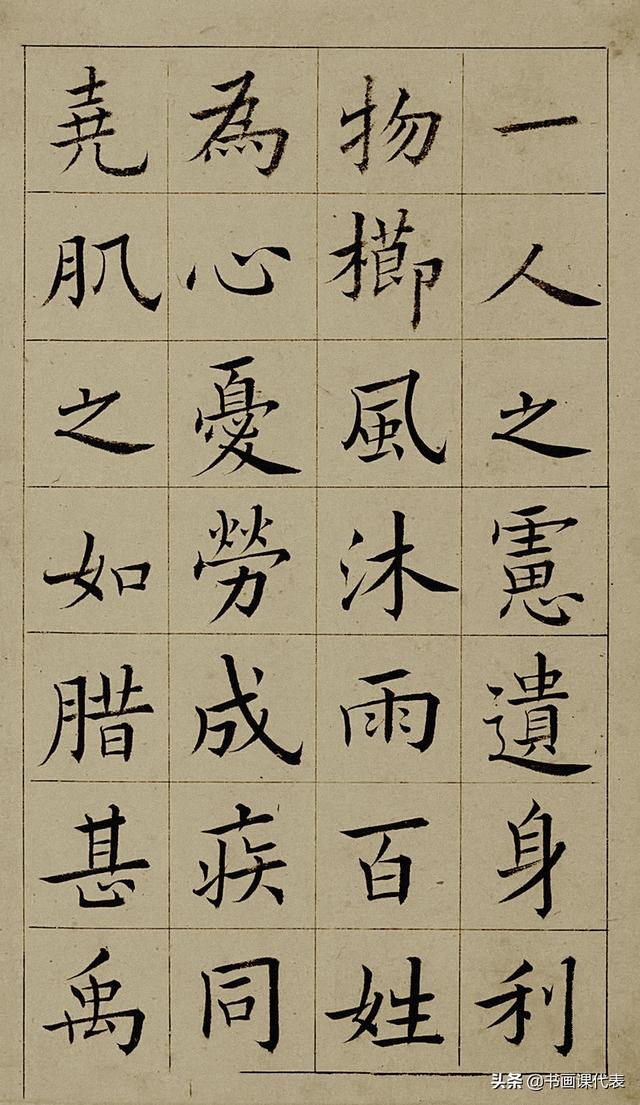 一人之慮遺身利
物櫛風沐雨百姓
為心憂勞成疾同
堯肌之如腊甚禹
头条 @书画课代表